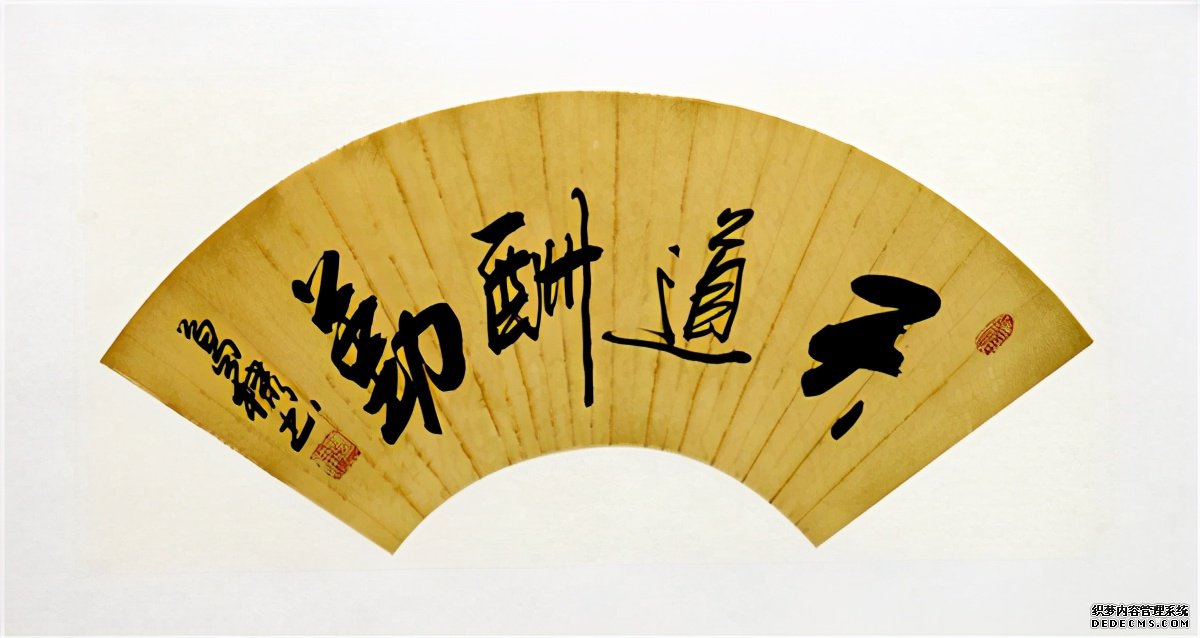 天道酬勤
织梦内容管理系统
DEDECMS.COM